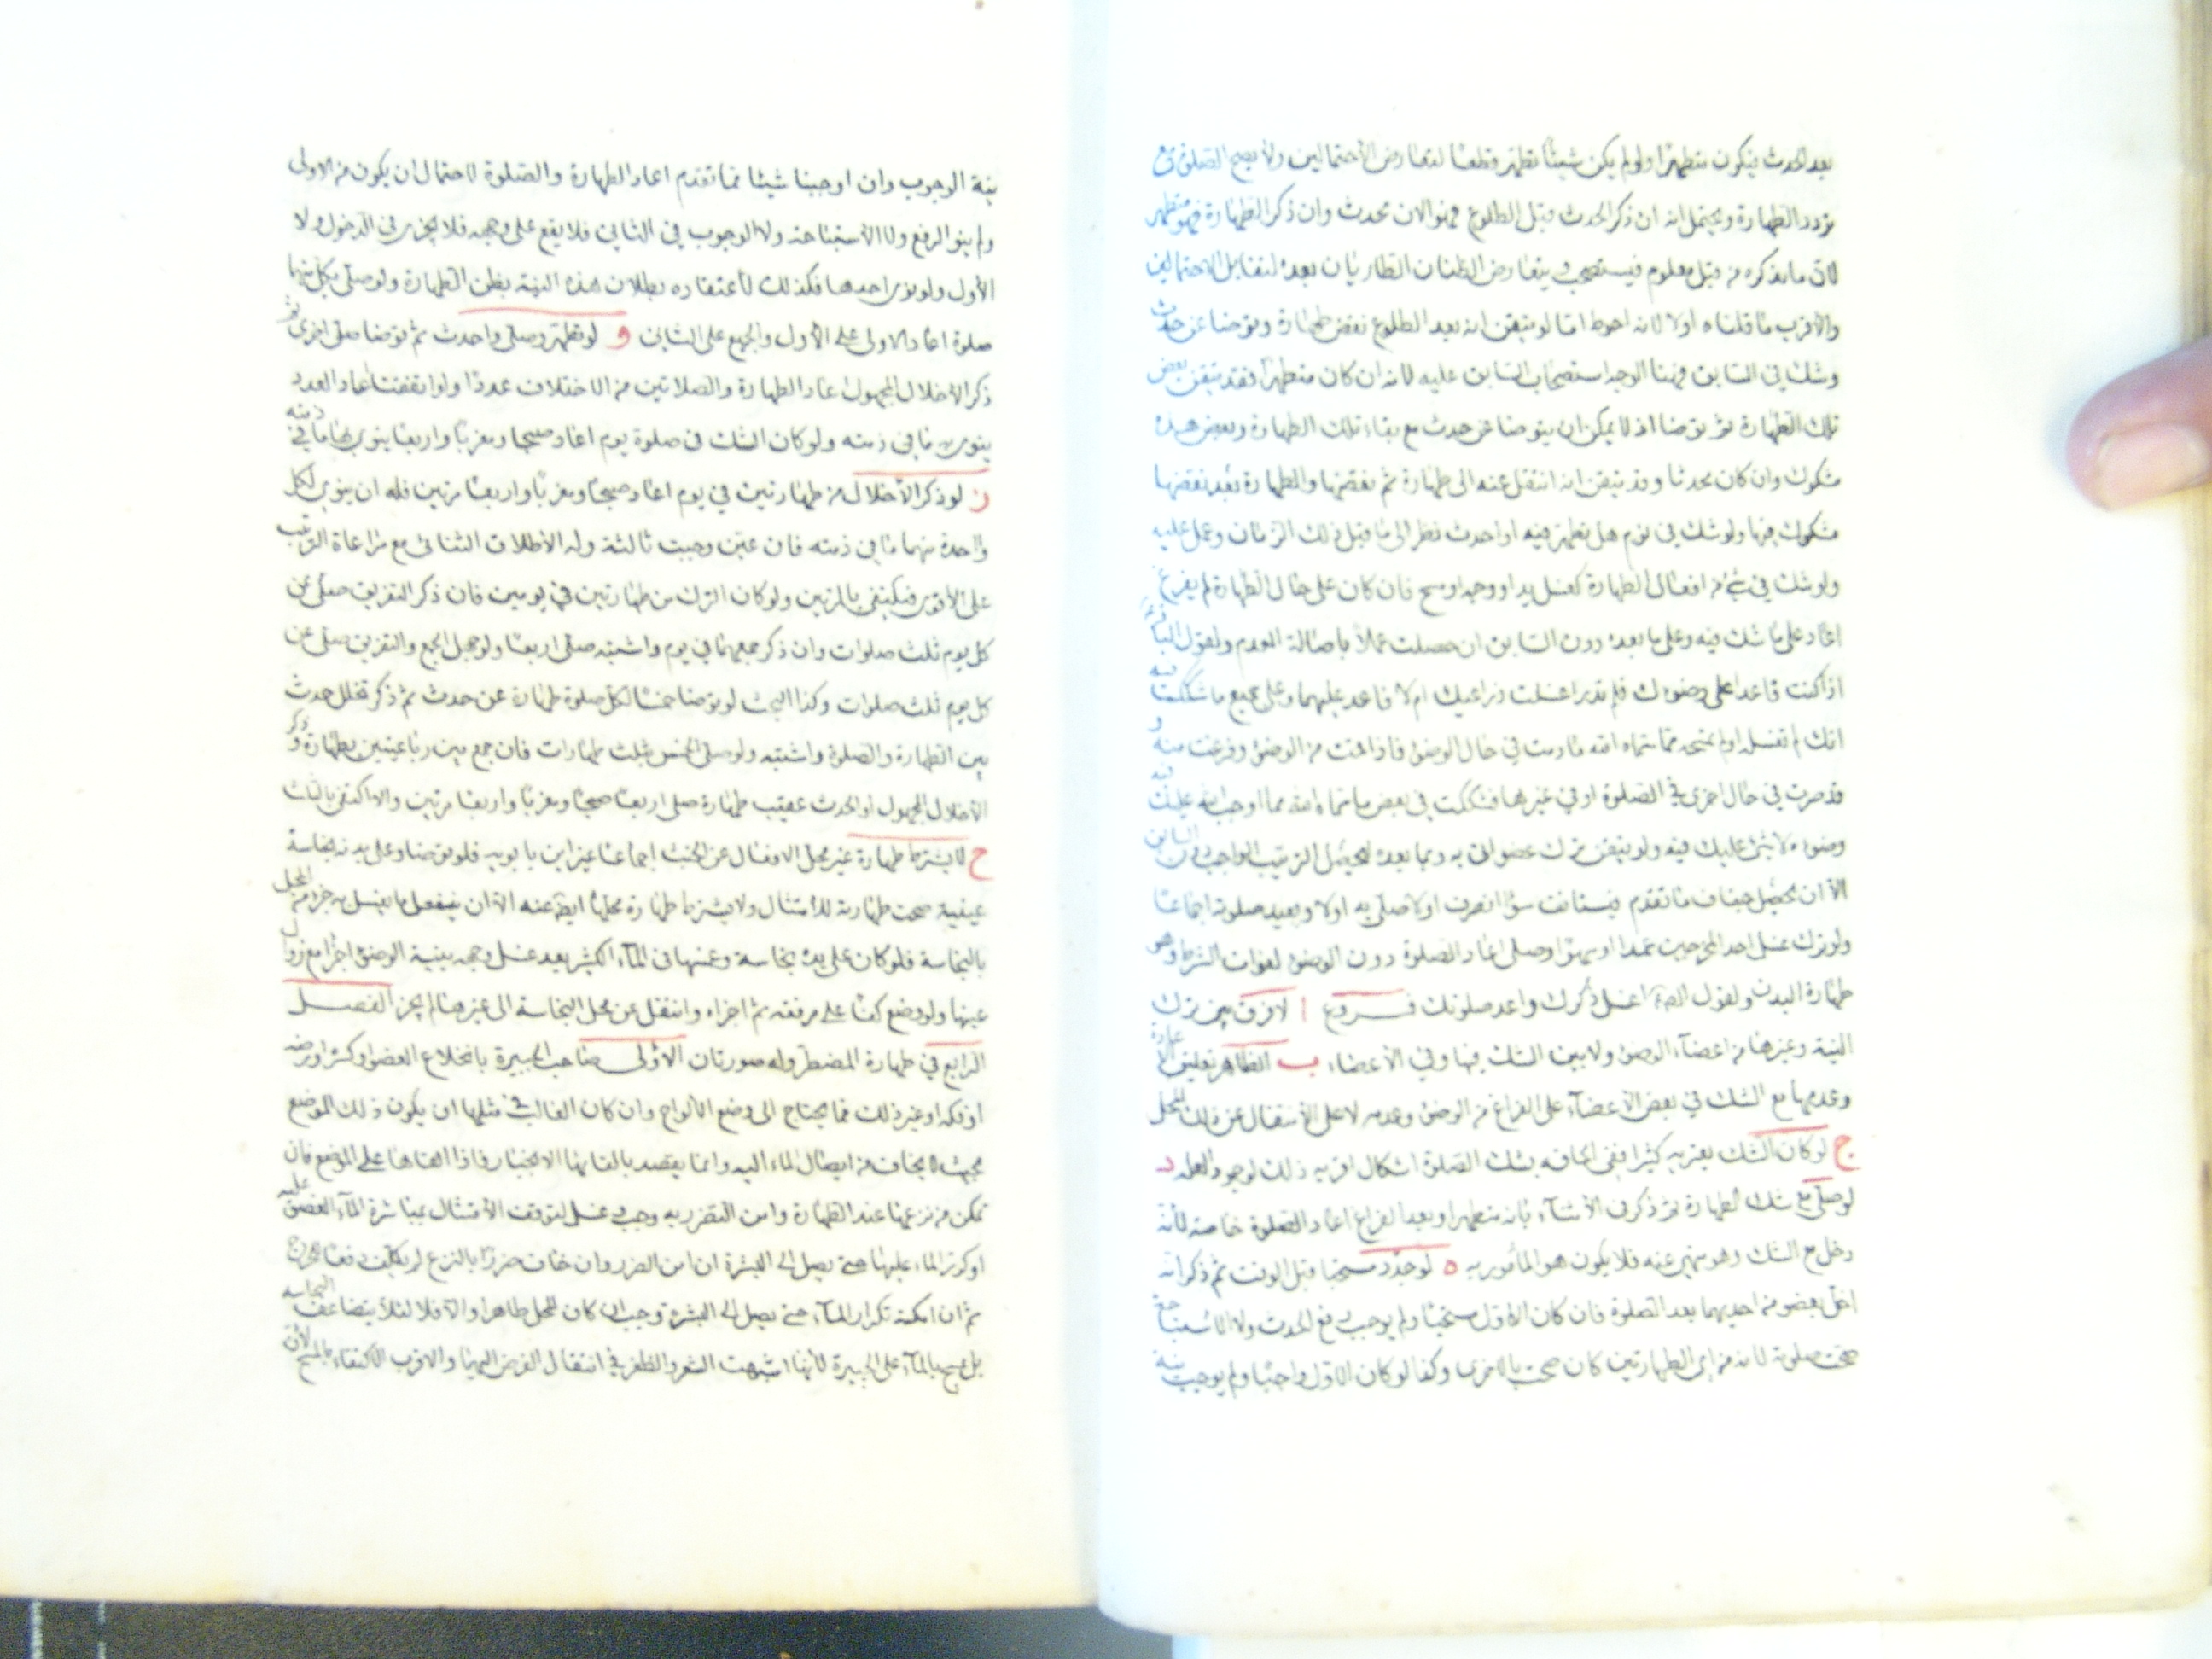 بعد الحدث فيكون متطهرا ولو لم يكن شيئا تطهر قطعا لتعارض الاحتمالين ولا يصح الصلوة مع
تردد الطهارة ويحتمل انه ان ذكر الحدث قبل الطلوع فهو الان محدث وان ذكر الطهارة فهو متطهر
لان ما يذكره من قبل معلوم فيستصحب ويتعارض الظنان الطاريان بعده لتقابل الاحتمالين
والاقرب ما قلناه اولا لانه احوط اما لو تيقن انه بعد الطلوع نقض طهارة وتوضا عن حدث
وشك في السابق فهنا الوجه استصحاب السابق عليه لانه ان كان متطهرا فقد تيقن نقض
تلك الطهارة ثم توضا اذ لا يمكن ان يتوضا عن حدث مع بقاء تلك الطهارة ونقض هذه
مشكوك وان كان محدثا وقد تيقن انه انتقل عنه الى طهارة ثم نقضها والطهارة بعد نقضها
مشكوك فيها ولو شك في يوم هل تطهر فيه او احدث نظر الى ما قبل ذلك الزمان وعمل عليه
ولو شك في شئ من افعال الطهارة كغسل يد او وجه او مسح فان كان على حال الطهارة لم يفرغ
اعاد على ما شك فيه وعلى ما بعده دون السابق ان حصلت عملا باصالة العدم ولقول الباقر
اذا كنت قاعدا على وضوءك فلم تدر اغسلت ذراعيك ام لا فاعد عليهما وعلى جميع ما شككت فيه
انك لم تغسله او لم تمسحه مما سماه الله ما دمت في حال الوضوء فاذا قمت من الوضوء وفرغت منه و
قد صرت في حال اخرى في الصلوة او في غيرها فشككت في بعض ما سماه الله مما اوجب الله عليك فيه
وضوءه لا شئ عليك فيه ولو تيقن ترك عضو اتى به وبما بعده ليحصل الترتيب الواجب دون السابق
الا ان يحصل جفاف ما تقدم فيستانف سواء انصرف او لا صلى به او لا ويعيد صلوته اجماعا
ولو ترك غسل احد المخرجين عمدا او سهوا وصلى اعاد الصلوة دون الوضوء لفوات الشرط وهو
طهارة البدن ولقول اغسل ذكرك واعد صلوتك فروع ا لا فرق بين ترك
النية وغيرها من اعضاء الوضوء ولا بين الشك فيها وفي الاعضاء ب الظاهر تعليق الاعادة
وعدمها مع الشك في بعض الاعضاء على الفراغ من الوضوء وعدمه لا على الانتقال عن ذلك المحل
ج لو كان الشك يعتريه كثيرا ففي الحاقه بشك الصلوة اشكال اقربه ذلك لوجود العلة د
لو صلى مع شك الطهارة ثم ذكر في الاثناء بانه متطهر او بعد الفراغ اعاد الصلوة خاصة لانه
دخل مع الشك وهو منهي عنه فلا يكون هو المأمور به ه لو جدد مستحبا قبل الوقت ثم ذكر انه
اخل بعضو من احديهما بعد الصلوة فان كان الاول مستحبا ولم يوجب رفع الحدث ولا الاستباحة
صحت صلوته لانه من اى الطهارتين كان صحت بالاخرى وكذا لو كان الاول واجبا ولم يوجب نية
نية الوجوب وان اوجبنا شيئا مما تقدم اعاد الطهارة والصلوة لاحتمال ان يكون من الاولى
ولم ينو الرفع ولا الاستباحة ولا الوجوب في الثاني فلا يقع على وجهه فلا يجزى في الدخول ولا
الاول ولو نوى احدها فكذلك لاعتقاده بطلان هذه النية بظن الطهارة ولو صلى بكل منهما
صلوة اعاد الاولى على الاول والجميع على الثاني و لو تطهر وصلى واحدث ثم توضا صلى اخرى ثم
ذكر الاخلال المجهول اعاد الطهارة والصلاتين مع الاختلاف عددا ولو اتفقتا اعاد العدد
ينوى به ما في ذمته ولو كان الشك في صلوة يوم اعاد صبحا ومغربا واربعا ينوى بها ما في ذمته
ز لو ذكر الاخلال من طهارتين في يوم اعاد صبحا ومغربا واربعا مرتين فله ان ينوى لكل
واحدة منهما ما في ذمته فان عين وجبت ثالثة وله الاطلاق الثنائي مع مراعاة الترتيب
على الاقوى فيكتفى بالمرتين ولو كان الترك من طهارتين في يومين فان ذكر التفريق صلى عن
كل يوم ثلث صلوات وان ذكر جمعهما في يوم واشتبه صلى اربعا ولو جهل الجمع والتفريق صلى عن
كل يوم ثلث صلوات وكذا البحث لو توضا خمسا لكل صلوة طهارة عن حدث ثم ذكر تخلل حدث
بين الطهارة والصلوة واشتبه ولو صلى الخمس بثلث طهارات فان جمع بين رباعيتين بطهارة وذكر
الاخلال المجهول او الحدث عقيب طهارة صلى اربعا صبحا ومغربا واربعا مرتين والا اكتفى بالثلث
ح لا يشترط طهارة غير محل الافعال عن الخبث اجماعا غير ابن بابويه فلو توضا وعلى بدنه نجاسة
عينية صحت طهارته للامتثال ولا يشترط طهارة محلها ايضا عنه الا ان ينفعل ما يغسل به جزء من المحل
بالنجاسة فلو كان على يده نجاسة وغمسها في الماء الكثير بعد غسل وجهه بنية الوضوء اجزا مع زوال
عينها ولو وضع كفا على مرفقه ثم اجراه وانتقل عن محل النجاسة الى غيرها لم يجز الفصل
الرابع في طهارة المضطر وله صورتان الاولى صاحب الجبيرة بانخلاع العضو او كسره او رضه
او فكه او غير ذلك مما يحتاج الى وضع الالواح وان كان الغالب في مثلها ان يكون ذلك الموضع
بحيث لا يخاف من ايصال الماء اليه وانما يقصد بالقائها الانجبار فاذا القاها على الموضع فان
تمكن من نزعها عند الطهارة وامن التضرر به وجب غسل لتوقف الامتثال بمباشرة الماء العضو عليه
او كرر الماء عليها حتى يصل الى البشرة ان امن الضرر وان خاف ضررا بالنزع لم يكلف دفعا للحرج
ثم ان امكنه تكرار الماء حتى يصل الى البشرة وجب ان كان المحل طاهرا والا فلا لئلا يتضاعف النجاسة
بل يمسح بالماء على الجبيرة لانها اشبهت الشعر والظفر في انتقال الفرض اليهما والاقرب الاكتفاء بالمسح لان